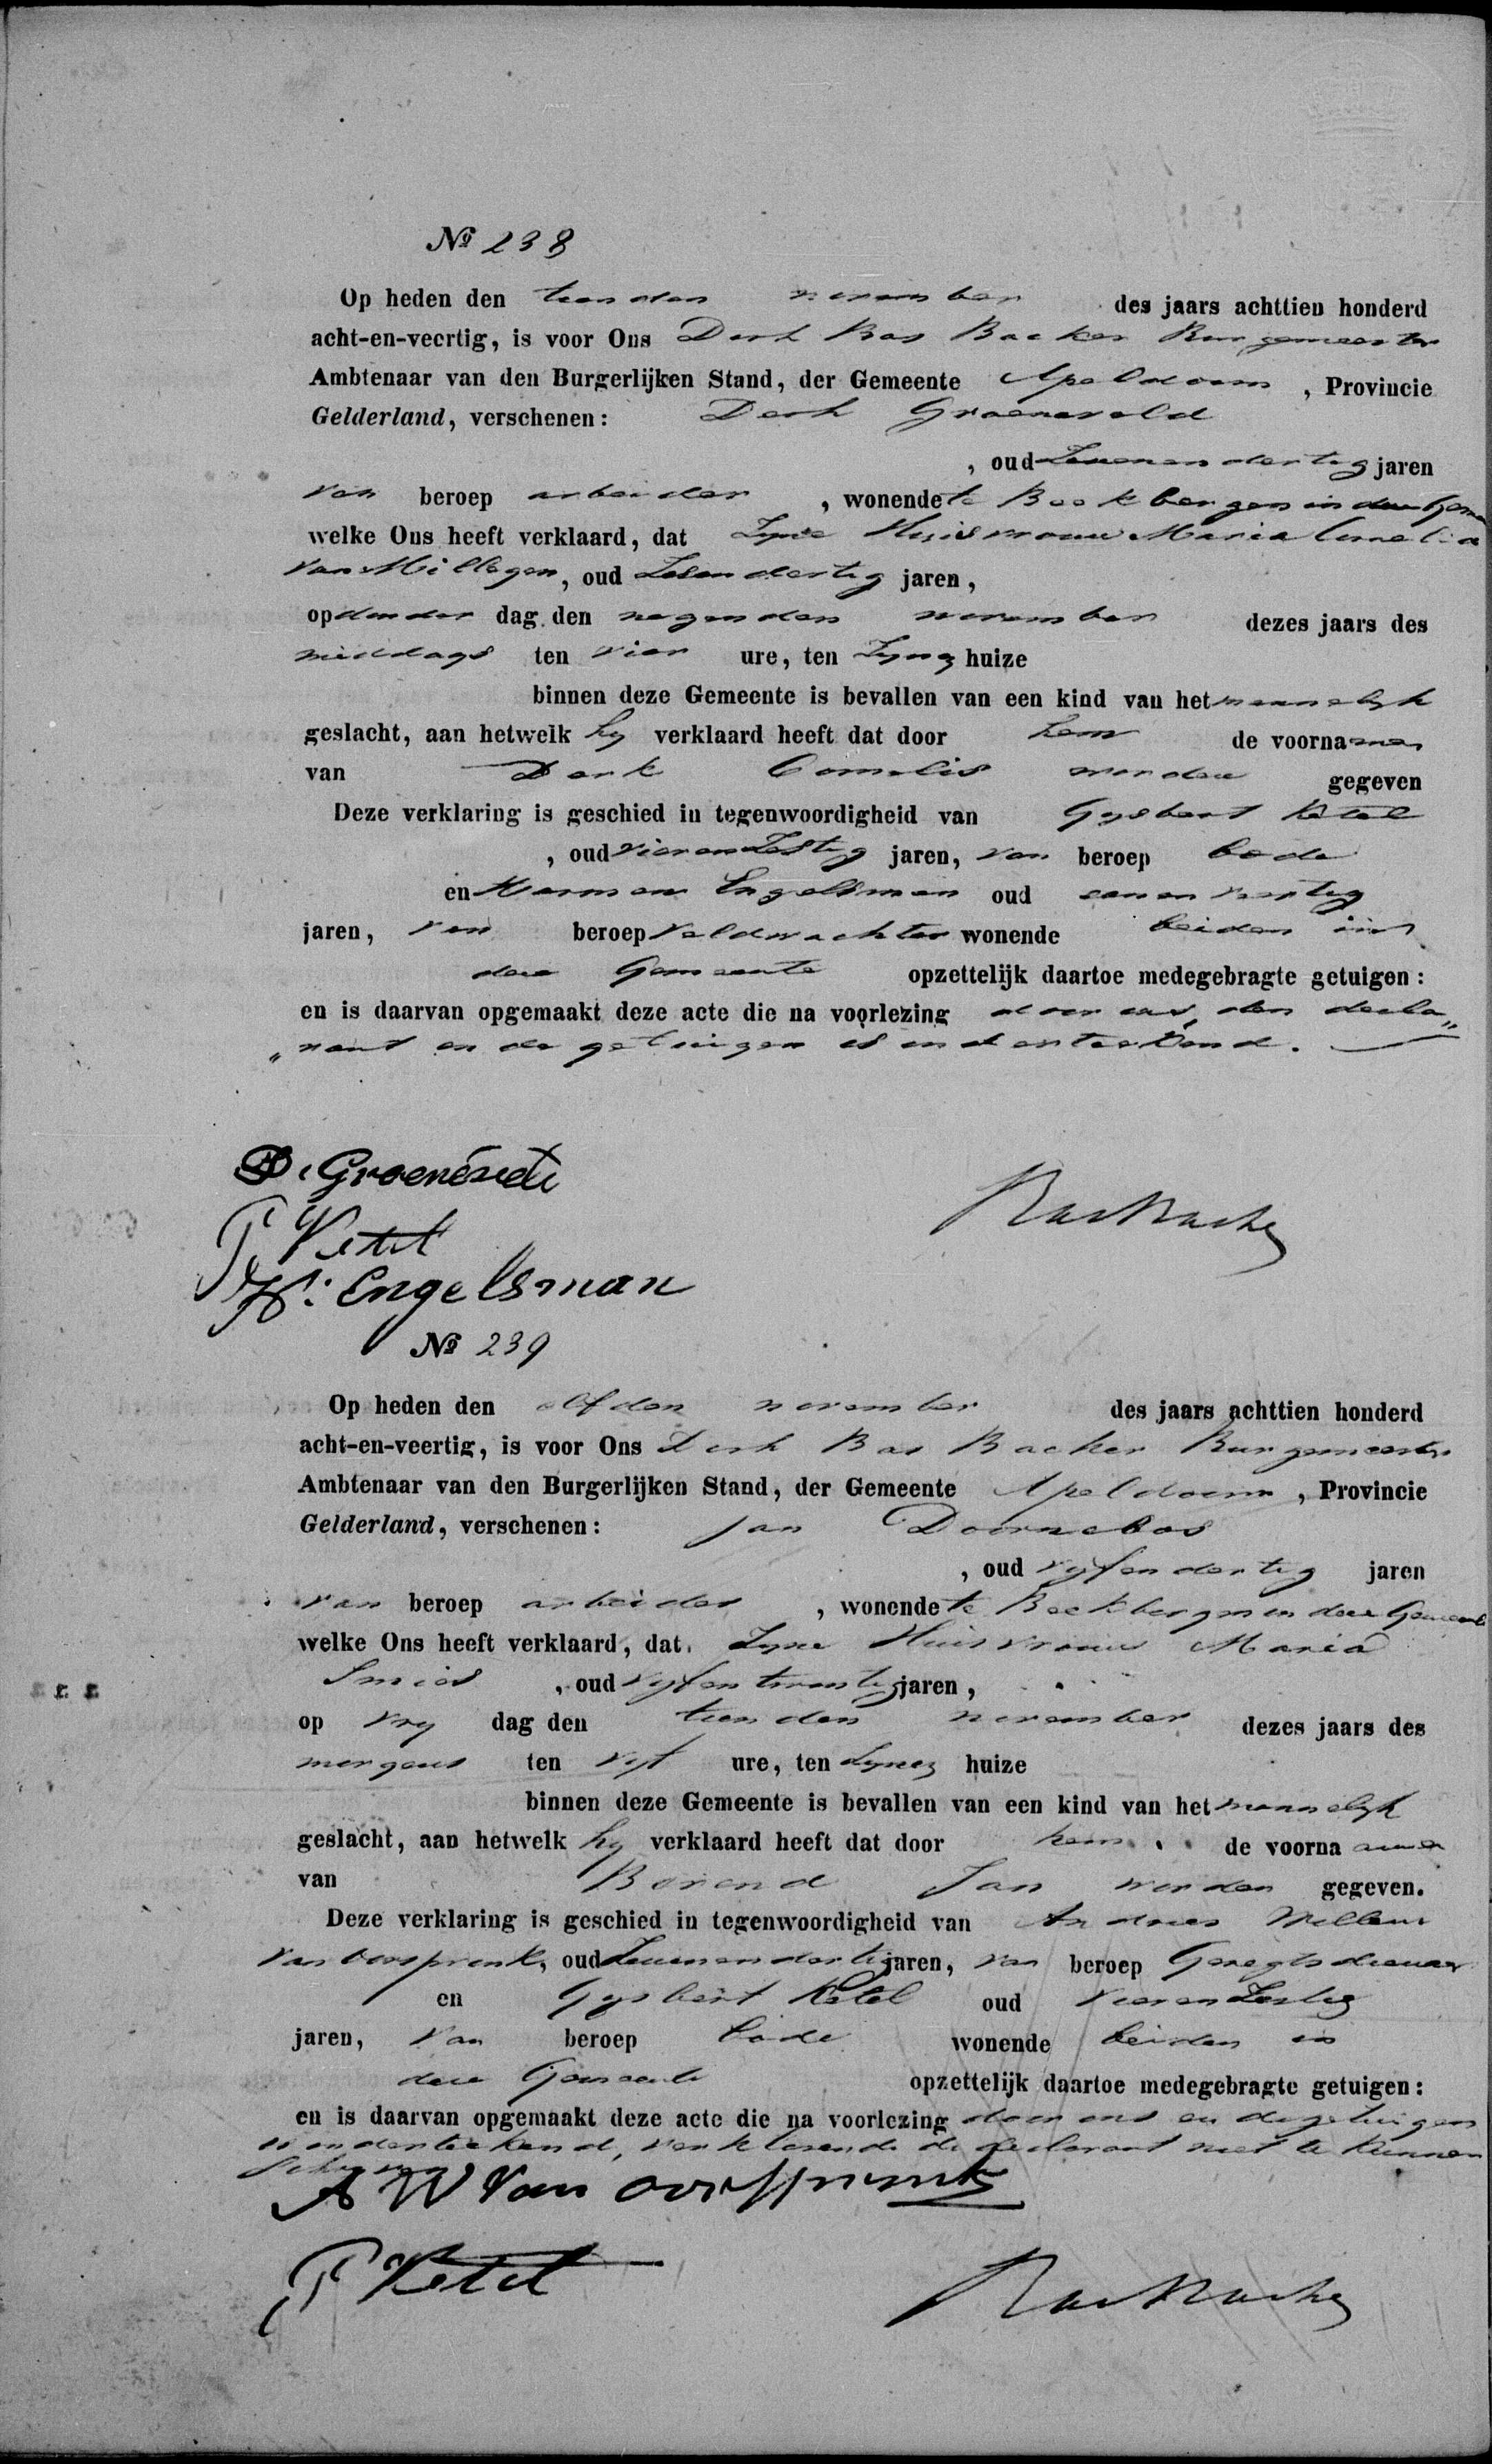 № 238
Op heden den tienden november des jaars achttien honderd
acht-en-veertig, is voor Ons Derk Bas Backer Burgemeester
Ambtenaar van den Burgerlijken Stand, der Gemeente Apeldoorn, Provincie
Gelderland, verschenen: Derk Groeneveld
, oud Zevenendertig jaren
van beroep arbeider, wonende te Beekbergen in deze Gem
welke Ons heeft verklaard, dat Zyne Huisvrouw Maria Cornelia
van Millegen, oud Zesendertig jaren,
op donder dag den negenden november dezes jaars des
middags ten vier ure, ten Zynez huize
binnen deze Gemeente is bevallen van een kind van het mannelyk
geslacht, aan hetwelk hy verklaard heeft dat door hem de voornamen
van Derk Cornelis worden gegeven
Deze verklaring is geschied in tegenwoordigheid van Gysbert Ketel
, oud vierenzestig jaren, van beroep bode
en Harmen Engelsman oud eenenveertig
jaren, van beroep veldwachter wonende beiden in
deze Gemeente opzettelijk daartoe medegebragte getuigen:
en is daarvan opgemaakt deze acte die na voorlezing door ons, den decla„
„rant en de getuigen is onderteekend.
D. Groeneveld
G Ketel
H: Engelsman
Bas Backer
№ 239
Op heden den elfden november des jaars achttien honderd
acht-en-veertig, is voor Ons Derk Bas Backer Burgemeester
Ambtenaar van den Burgerlijken Stand, der Gemeente Apeldoorn, Provincie
Gelderland, verschenen: Jan Doornebos
, oud vyfendertig jaren
van beroep arbeider, wonende te Beekbergen in deze Gemeente
welke Ons heeft verklaard, dat Zyne Huisvrouw Maria
Smies, oud vyfentwintig jaren,
op vry dag den tienden november dezes jaars des
morgens ten vyf ure, ten Zynez huize
binnen deze Gemeente is bevallen van een kind van het mannelyk
geslacht, aan hetwelk hy verklaard heeft dat door hem de voornamen
van Berend Jan worden gegeven.
Deze verklaring is geschied in tegenwoordigheid van Andries Willem
van Oorspronk, oud Zevenendertig jaren, van beroep Geregtsdienaar
en Gysbert Ketel oud vierenzestig
jaren, van beroep bode wonende beiden in
deze Gemeente opzettelijk daartoe medegebragte getuigen:
en is daarvan opgemaakt deze acte die na voorlezing door ons en de getuigen
is onderteekend, verklarende de declarant niet te kunnen
schryven
A W van Oorspronk
G Ketel
Bas Backer